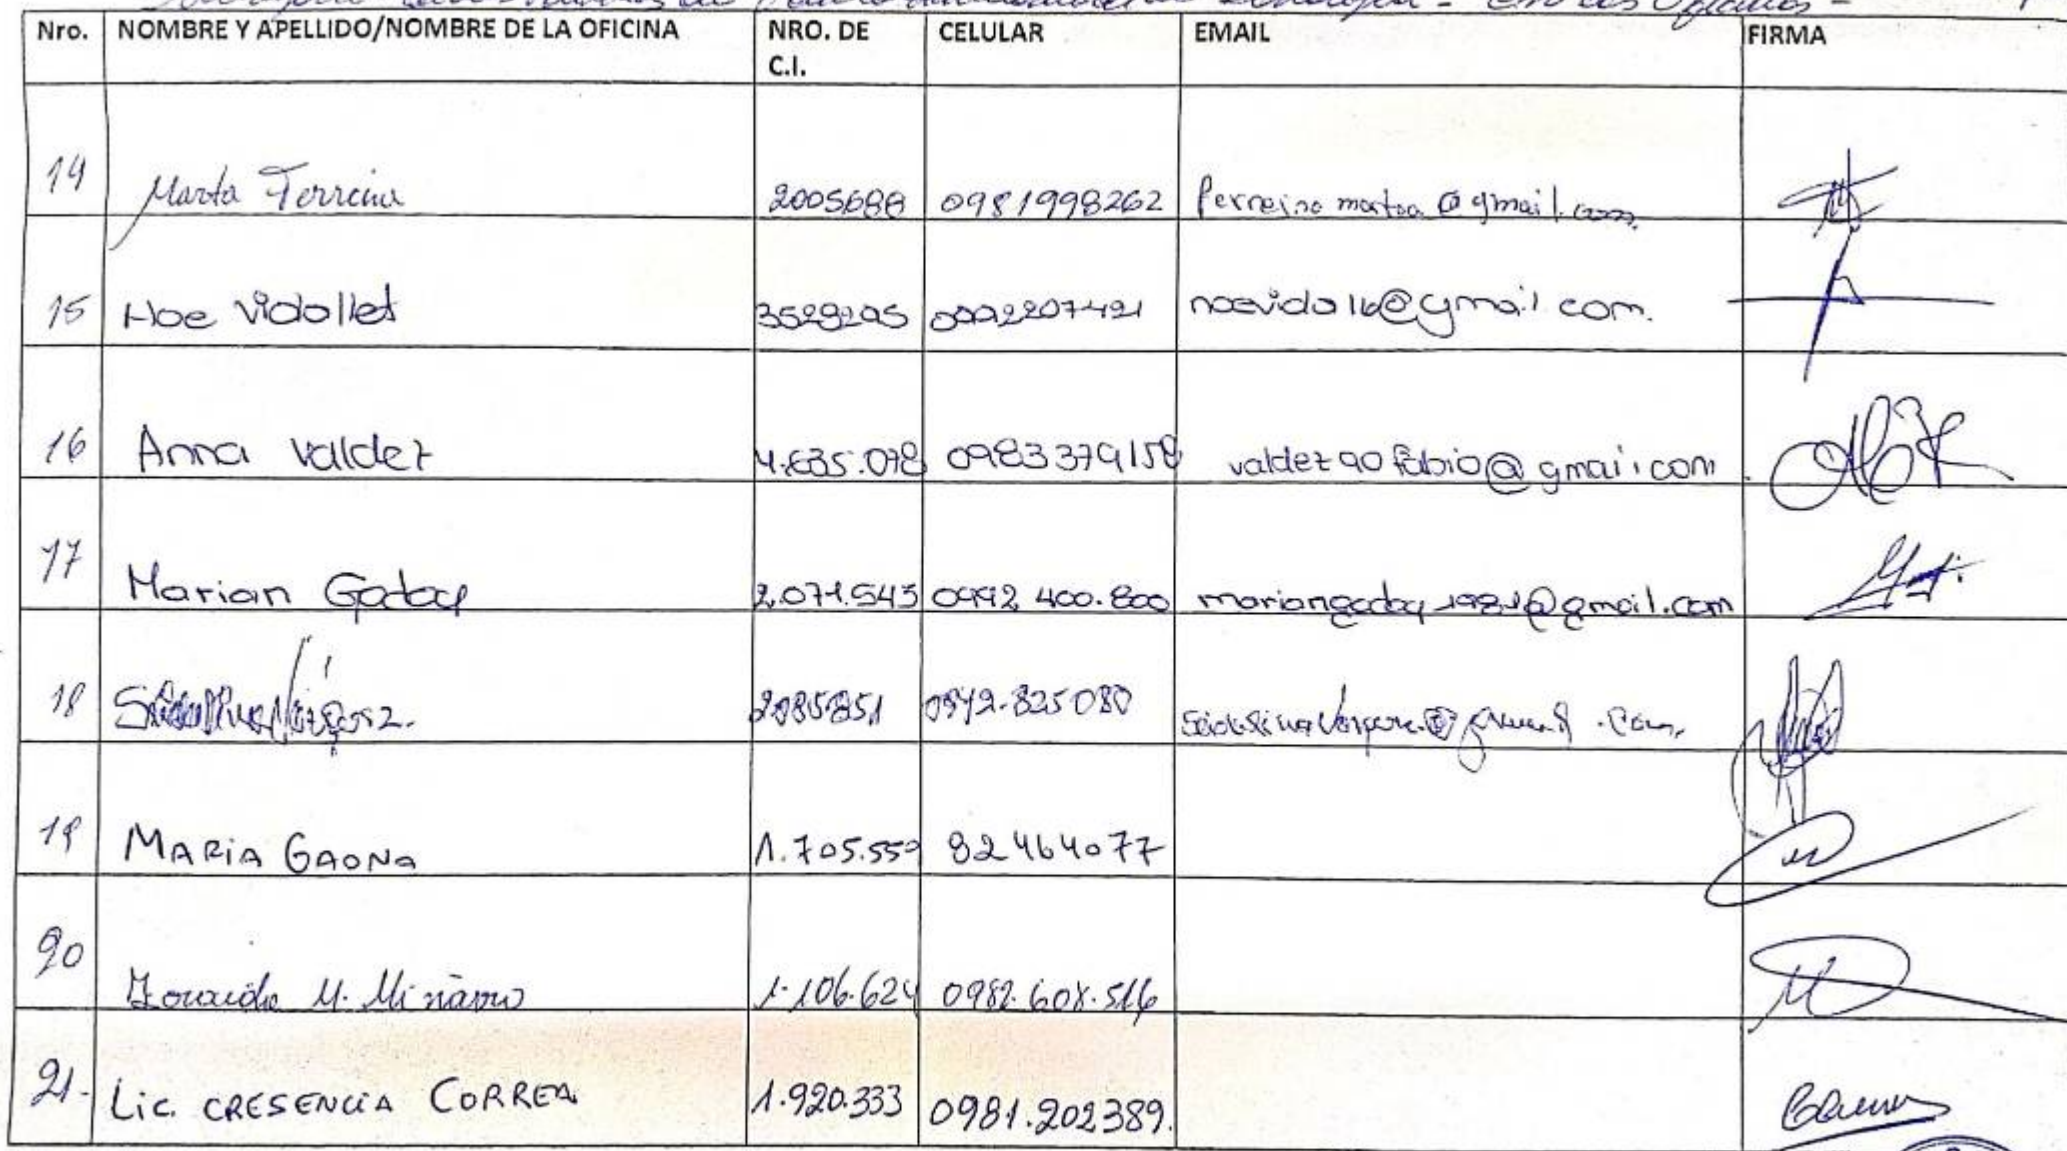 Nro. NOMBRE Y APELLIDO/NOMBRE DE LA OFICINA NRO. DE C.I. CELULAR EMAIL FIRMA
14 Marta Ferreira 2005688 0981998262 ferreiramartaa@gmail.com
15 Noe Vidallet 3529295 0992207421 noevida16@gmail.com.
16 Anna Valdez 4.635.078 0983379158 valdez90fabio@gmai.com
17 Marian Godoy 2.071.543 0992 400.800 mariangodoy1981@gmail.com
18 2985851 0972-825080
19 MARIA GAONA 1.705.559 82464077
20 M. Miñarro 1.106.624 0982.608.516
21- Lic. CRESENCIA CORREA 1.920.333 0981.202389.